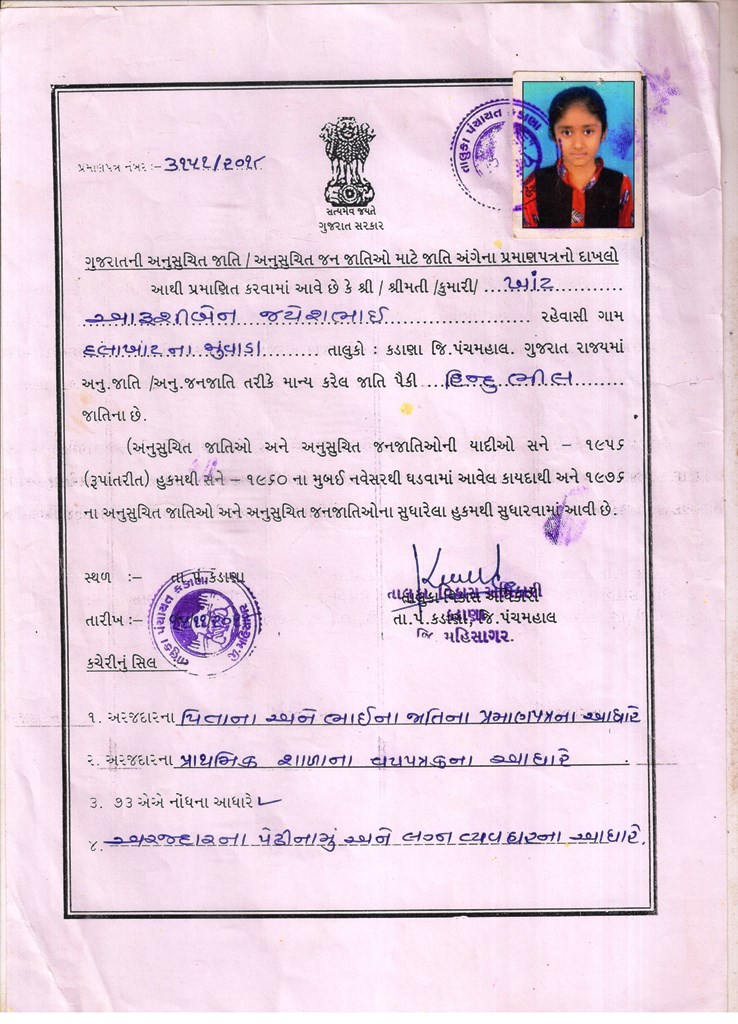 પ્રમાણપત્ર નંબર :- ૩૧૫૧/૨૦૧૮
તાલુકા પંચાયત કડાણા
સત્યમેવ જયતે
ગુજરાત સરકાર
ગુજરાતની અનુસુચિત જાતિ / અનુસુચિત જન જાતિઓ માટે જાતિ અંગેના પ્રમાણપત્રનો દાખલો
આથી પ્રમાણિત કરવામાં આવે છે કે શ્રી / શ્રીમતી /કુમારી/ ....ખાંટ............
આરૂશીબેન જયેશભાઈ .................... રહેવાસી ગામ
દલાખાંટ ના મુવાડા.......... તાલુકો : કડાણા જિ.પંચમહાલ. ગુજરાત રાજ્યમાં
અનુ.જાતિ /અનુ.જનજાતિ તરીકે માન્ય કરેલ જાતિ પૈકી ...હિન્દુ ભીલ........
જાતિના છે.
(અનુસુચિત જાતિઓ અને અનુસુચિત જનજાતિઓની યાદીઓ સને – ૧૯૫૬
(રૂપાંતરીત) હુકમથી સને – ૧૯૬૦ ના મુબઈ નવેસરથી ઘડવામાં આવેલ કાયદાથી અને ૧૯૭૬
ના અનુસુચિત જાતિઓ અને અનુસુચિત જનજાતિઓના સુધારેલા હુકમથી સુધારવામાં આવી છે.
સ્થળ :– તા.પં.કડાણા
તાલુકા વિકાસ અધિકારી
તાલુકા વિકાસ અધિકારી
કડાણા
તારીખ :–
તા.પં.કડાણા, જિ.પંચમહાલ
જિ. મહિસાગર.
તાલુકા પંચાયત કડાણા
કચેરીનું સિલ
૧. અરજદારના પિતાના અને ભાઈના જાતિના પ્રમાણપત્રના આધારે
૨. અરજદારના પ્રાથમિક શાળાના વયપત્રકના આધારે .
૩. ૭૩ એએ નોંધના આધારે ✓
૪. અરજદારના પેઢીનામું અને લગ્ન વ્યવહારના આધારે.